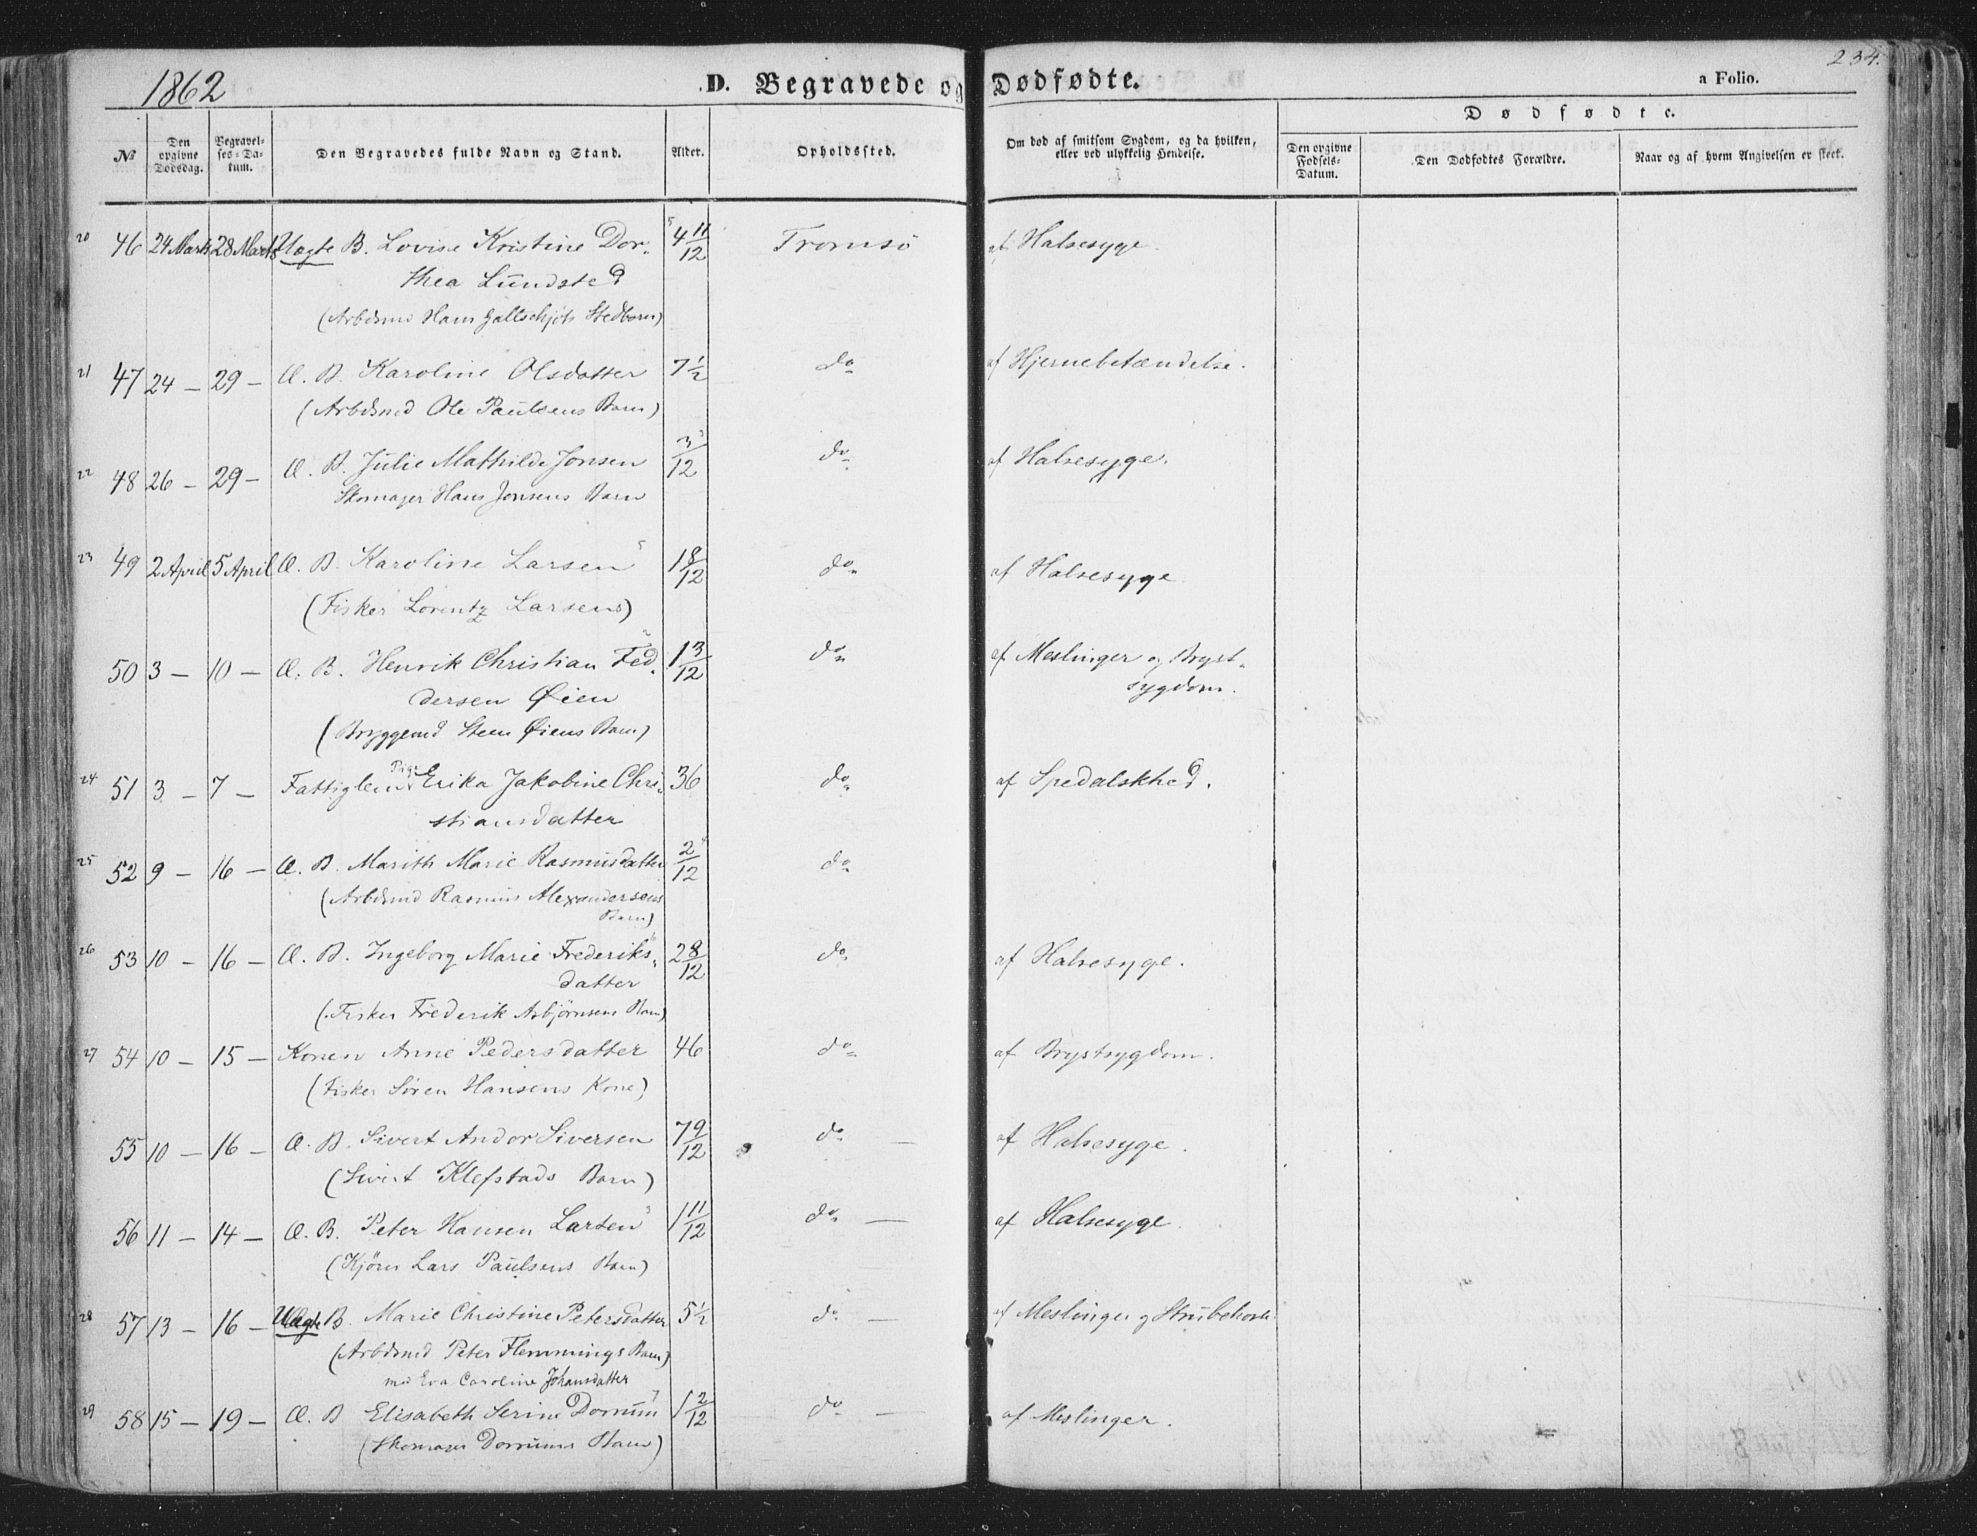 1862
D. Begravede og Dødfødte.
a Folio.
234.
Dødfødte.
No
Den opgivne Dødsdag.
Begravelses-Datum.
Den Begravedes fulde Navn og Stand.
Alder.
Opholdssted.
Om død af smitsom Sygdom, og da hvilken, eller ved ulykkelig Hendelse.
Den opgivne Fødsels-Datum.
Den Dødfødtes Forældre.
Naar og af hvem Angivelsen er skeet.
20 46 24 Marts 28 Marts Uægte B. Lovise Kristine Dor- 4 11/12 Tromsø af Halsesyge.
thea Lundsted
(Arbdsmd Hans Stedbarn)
21 47 24 - 29 - Æ. B. Karoline Olsdatter 7 1/2 do af Hjernebetændelse.
(Arbdsmd Ole Paulsens Barn)
22 48 26 - 29 - Æ. B. Julie Mathilde Jonsen 3/12 do af Halsesyge.
Skomager Hans Jonsens Barn
23 49 2 April 5 April Æ. B. Karoline Larsen 1 8/12 do af Halsesyge
(Fisker Lorentz Larsens)
50 3 - 10 - Æ. B. Henrik Christian Fed- 1 3/12 do af Meslinger og Bryst-
dersen Øien sygdom.
(Bryggemd Steen Øiens Barn)
24 51 3 - 7 - Fattiglem Pige Erika Jakobine Chri- 36 do af Spedalskhed.
stiansdatter
25 52 9 - 16 - Æ. B. Marith Marie Rasmusdatter 2/12 do
(Arbdsmd Rasmus Alexandersens
Barn)
26 53 10 - 16 - Æ. B. Ingeborg Marie Frederiks- 2 8/12 do af Halsesyge.
datter
(Fisker Frederik Asbjørnsens Barn)
27 54 10 - 15 - Konen Anne Pedersdatter 46 do af Brystsygdom.
(Fisker Søren Hansens Kone)
55 10 - 16 - Æ. B. Sivert Andor Siversen 7 9/12 do - af Halsesyge.
(Sivert Klefstads Barn)
56 11 - 14 - Æ. B. Peter Hansen Larsen 1 11/12 do - af Halsesyge.
(Kjører Lars Paulsens Barn)
28 57 13 - 16 - Uægte B. Marie Christine Petersdatter 5 1/2 do - af Meslinger og Strubehoste
(Arbdsmd Peter Flemmings Barn)
med Eva Caroline Johansdatter
29 58 15 - 19 - Æ. B Elisabeth Serine Dorrum 1 2/12 do - af Meslinger.
(Skomager Dorrums Barn)